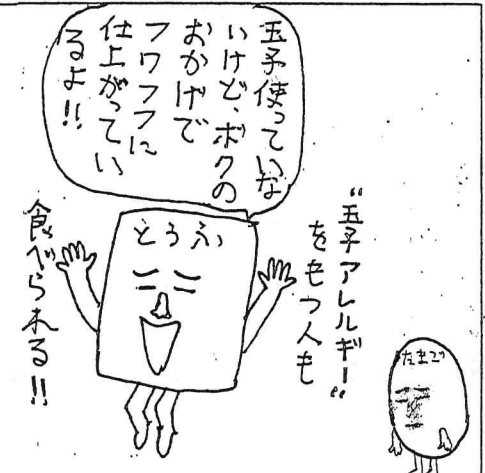 玉子使っていな
いけど、ボクの
おかげで
フワフワに
仕上がってい
るよ!!
"玉子アレルギー"
をもつ人も
食べられる!!
とうふ
たまご